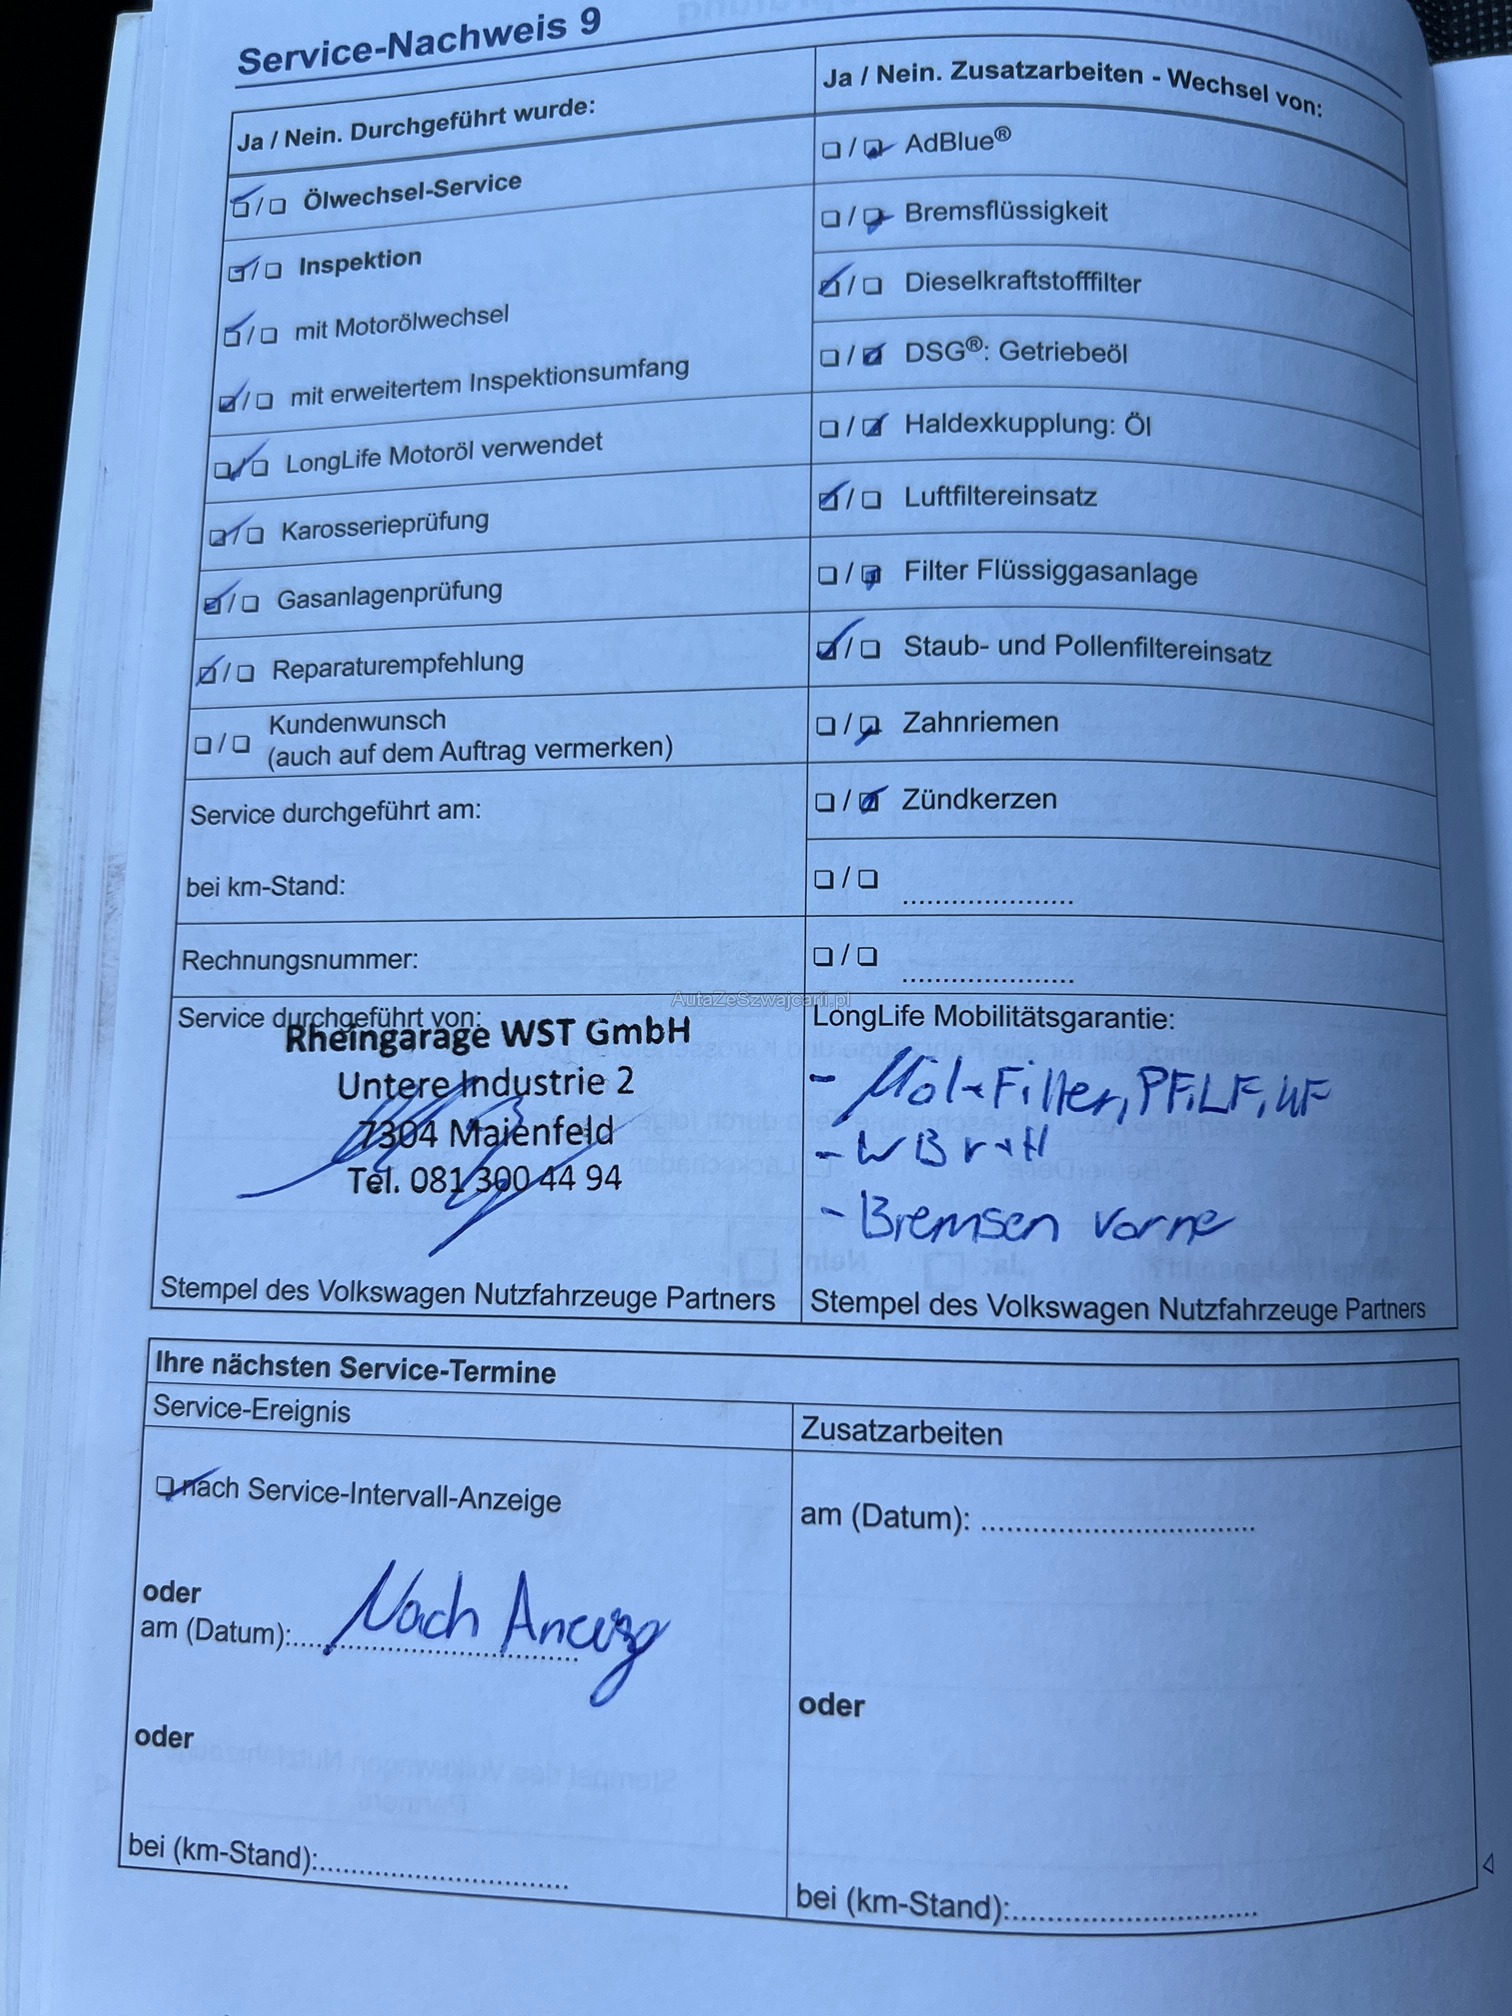 Service-Nachweis 9
Ja / Nein. Durchgeführt wurde:
❏ / ❏ Ölwechsel-Service
❏ / ❏ Inspektion
❏ / ❏ mit Motorölwechsel
❏ / ❏ mit erweitertem Inspektionsumfang
❏ / ❏ LongLife Motoröl verwendet
❏ / ❏ Karosserieprüfung
❏ / ❏ Gasanlagenprüfung
❏ / ❏ Reparaturempfehlung
❏ / ❏ Kundenwunsch
(auch auf dem Auftrag vermerken)
Service durchgeführt am:
bei km-Stand:
Rechnungsnummer:
Service durchgeführt von:
Rheingarage WST GmbH
Untere Industrie 2
7304 Maienfeld
Tel. 081 300 44 94
Stempel des Volkswagen Nutzfahrzeuge Partners
Ja / Nein. Zusatzarbeiten - Wechsel von:
❏ / ❏ AdBlue®
❏ / ❏ Bremsflüssigkeit
❏ / ❏ Dieselkraftstofffilter
❏ / ❏ DSG®: Getriebeöl
❏ / ❏ Haldexkupplung: Öl
❏ / ❏ Luftfiltereinsatz
❏ / ❏ Filter Flüssiggasanlage
❏ / ❏ Staub- und Pollenfiltereinsatz
❏ / ❏ Zahnriemen
❏ / ❏ Zündkerzen
❏ / ❏ .....................
❏ / ❏ .....................
AutaZeSzwajcarii.pl
LongLife Mobilitätsgarantie:
- Möl+Filter, PF, LF,
- WB v+H
- Bremsen vorne
Stempel des Volkswagen Nutzfahrzeuge Partners
Ihre nächsten Service-Termine
Service-Ereignis
❏ nach Service-Intervall-Anzeige
oder
am (Datum): Nach
oder
bei (km-Stand):..............................
Zusatzarbeiten
am (Datum): ..................................
oder
bei (km-Stand):..............................